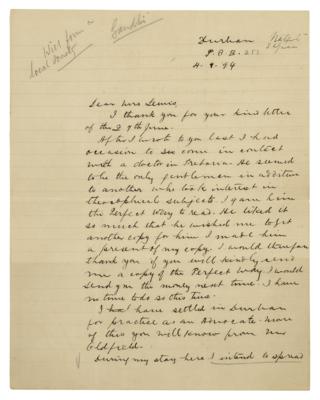 Will form a
local Society
Gandhi
Durban
P.B.B. 253
4-8-94
Dear Mrs Lewis,
I thank you for your kind letter
of the 27th June.
After I wrote to you last I had
occasion to come in contact
with a doctor in Pretoria. He seemed
to be the only gentleman in addition
to another who took interest in
theosophical subjects. I gave him
the Perfect Way to read. He liked it
so much that he wished me to get
another copy for him. I made him
a present of my copy. I would therefore
thank you if you will kindly send
me a copy of the Perfect Way. I would
send you the money next time. I have
no time to do so this time.
I have settled in Durban
for practice as an Advocate. More
of this you will know from Mr
Oldfield.
During my stay here I intend to spread